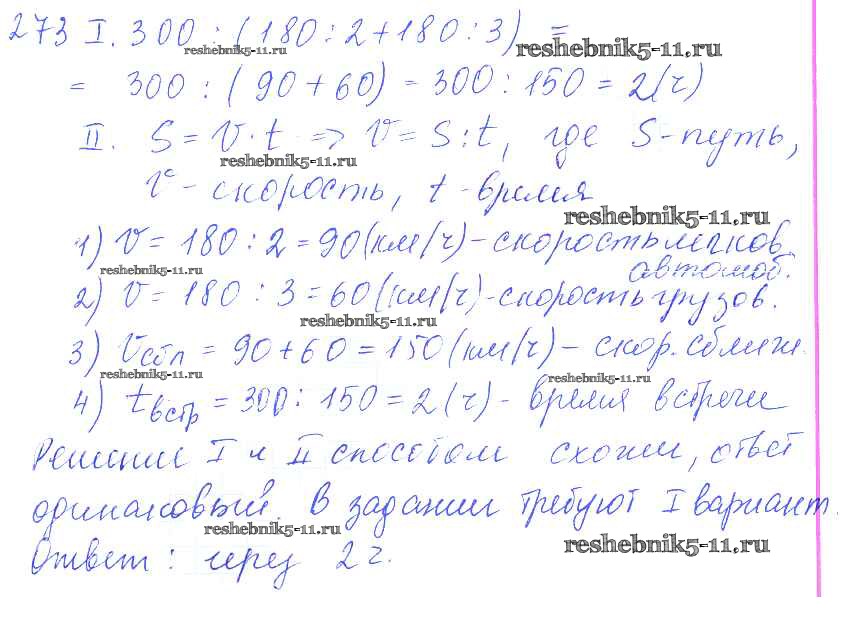 273 I. 300 : (180 : 2 + 180 : 3) =
reshebnik5-11.ru
reshebnik5-11.ru
= 300 : (90 + 60) = 300 : 150 = 2(ч)
II. S = V · t => V = S : t, где S - путь,
reshebnik5-11.ru
V - скорость, t - время
reshebnik5-11.ru
1) V = 180 : 2 = 90 (км/ч) - скорость легков.
автомоб.
reshebnik5-11.ru
2) V = 180 : 3 = 60 (км/ч) - скорость грузов.
reshebnik5-11.ru
3) Vсбл = 90 + 60 = 150 (км/ч) - скор. сближ.
reshebnik5-11.ru
reshebnik5-11.ru
4) tвстр = 300 : 150 = 2 (ч) - время встречи
Решение I и II способом схожи, ответ
одинаковый. В задании требуют I вариант.
reshebnik5-11.ru
Ответ: через 2 ч.
reshebnik5-11.ru